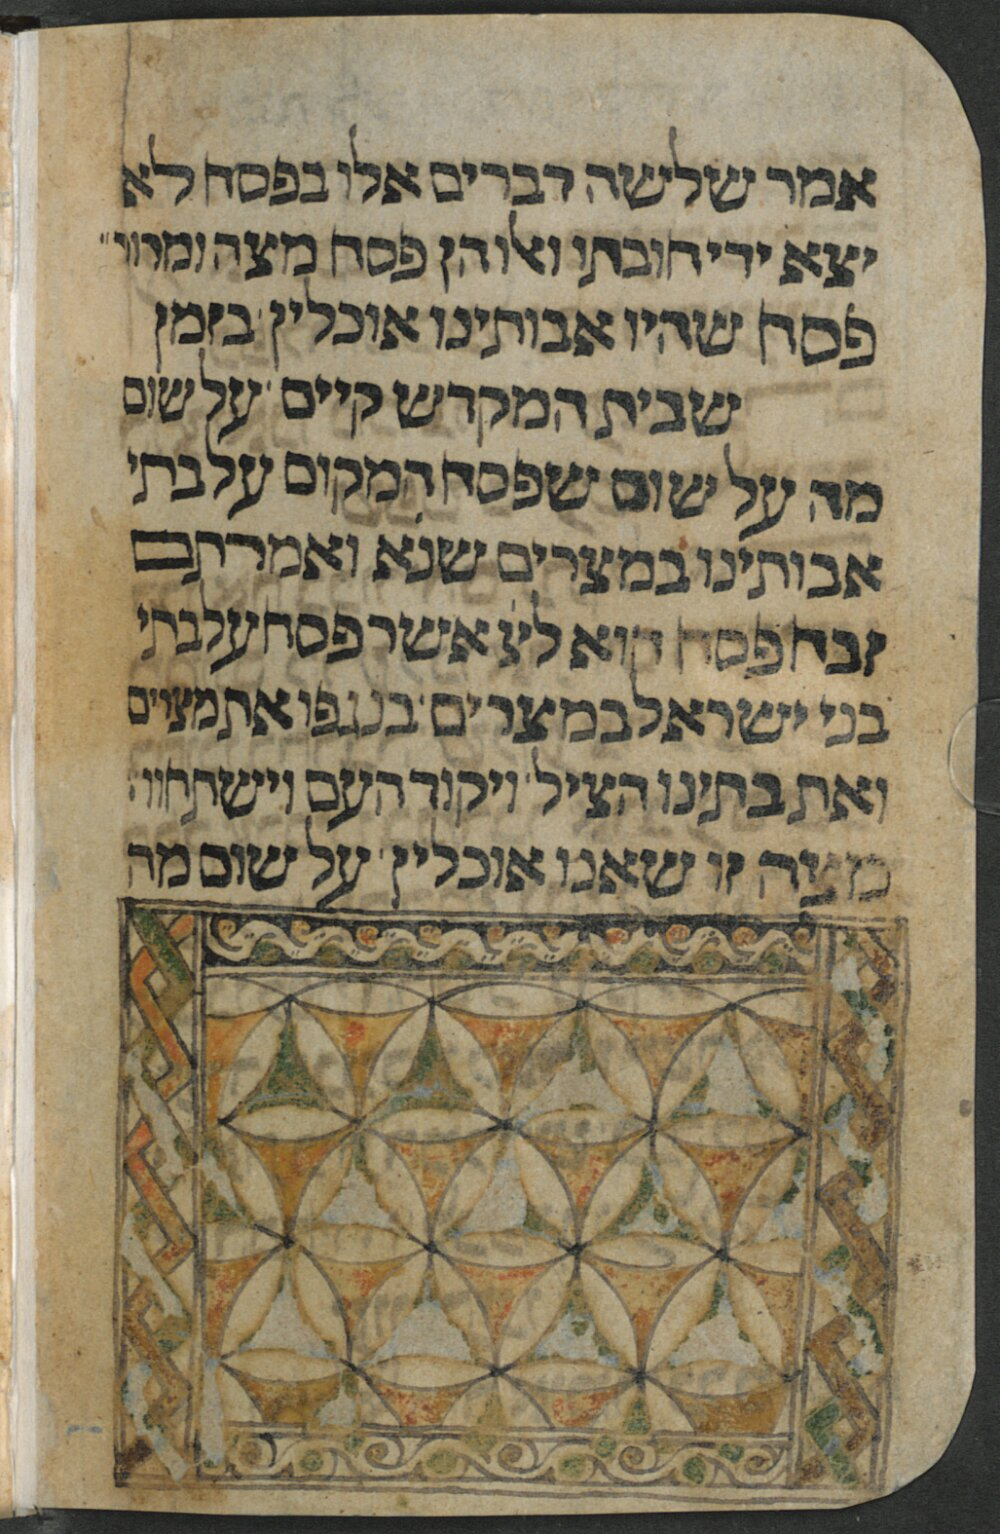 אמר שלשה דברים אלו בפסח לא
יצא ידי חובתו ואלו הן פסח מצה ומרור
פסח שהיו אבותינו אוכלין בזמן
שבית המקדש קיים על שום
מה על שום שפסח המקום על בתי
אבותינו במצרים שנא ואמרתם
זבח פסח הוא ליי אשר פסח על בתי
בני ישראל במצרים בנגפו את מצרים
ואת בתינו הציל ויקוד העם וישתחוו
מצה זו שאנו אוכלין על שום מה